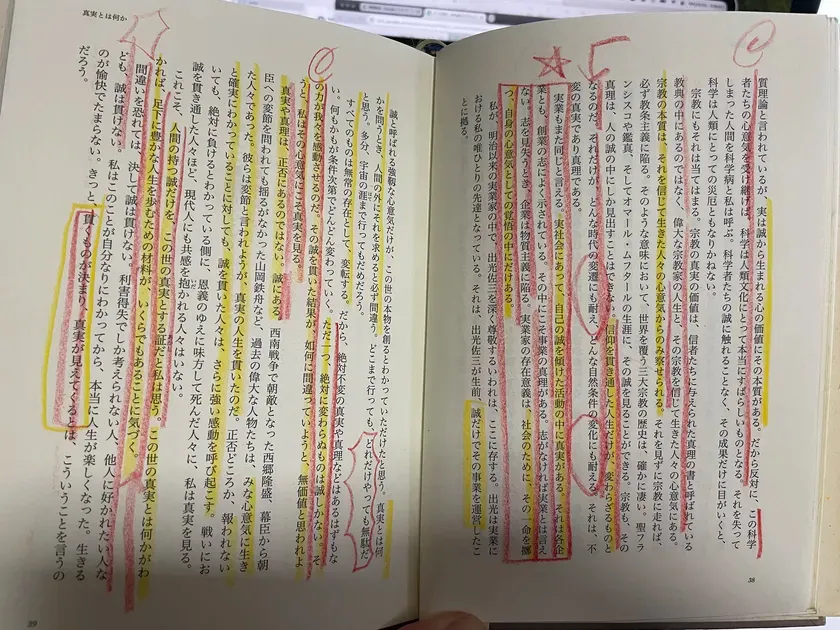 質理論と言われているが、実は誠から生まれる心の価値にその本質がある。だから反対に、この科学
者たちの心意気を受け継げば、科学は人類文化にとって本当にすばらしいものとなる。それを失って
しまった人間を科学病と私は呼ぶ。科学者たちの誠に触れることなく、その成果だけに目がいくと、
科学は人類にとっての災厄ともなりかねない。
宗教にもそれは当てはまる。宗教の真実の価値は、信者たちに与えられた真理の書と呼ばれている
教典の中にあるのではなく、偉大な宗教家の人生と、その宗教を信じて生きた人々の心意気にある。
宗教の本質は、それを信じて生きた人々の心意気からのみ察せられる。それを見ずに宗教に走れば、
必ず教条主義に陥る。そのような意味において、世界を覆う三大宗教の歴史は、確かに凄い。聖フラ
ンシスコや鑑真、そしてオマール・ムフタールの生涯に、その誠を見ることができる。宗教も、その
真理は、人の誠の中にしか見出すことはできない。信仰を貫き通した人生だけが、変わらざるものと
なるのだ。それだけが、どんな時代の変遷にも耐え、どんな自然条件の変化にも耐える。それは、不
変の真実であり真理である。
実業もまた同じと言える。実社会にあって、自己の誠を傾けた活動の中に真実がある。それは各企
業とも、創業の志によく示されている。その中にこそ事業の真理がある。志がなければ実業とは言え
ない。志を見失うとき、企業は物質主義に陥る。実業家の存在意義は、社会のために、その一命を擲
つ、自身の心意気としての覚悟の中にだけある。
私が、明治以来の実業家の中で、出光佐三を深く尊敬するいわれは、ここに存する。出光は実業に
おける私の唯ひとりの先達となっている。それは、出光佐三が生前、誠だけでその事業を運営したこ
とに拠る。
38
真実とは何か
誠と呼ばれる強靭な心意気だけが、この世の本物を創るとわかっていただけたと思う。真実とは何
かを問うとき、人間の外にそれを求めると必ず間違う。どこまで行っても、どれだけやっても無駄だ
と思う。多分、宇宙の涯まで行ってもだめだろう。
すべてのものは無常の存在として、変転する。だから、絶対不変の真実や真理などはあるはずもな
い。何もかもが条件次第でどんどん変わっていく。ただ一つ、絶対に変わらぬものは誠しかない。そ
の力が我々を感動させるのだ。その誠を貫いた結果が、如何に間違っていようと、無価値と思われよ
うと、私はその心意気にこそ真実を見る。
真実や真理は、正否にあるのではない。誠にある。西南戦争で朝敵となった西郷隆盛、幕臣から朝
臣への変節を問われても揺るがなかった山岡鉄舟など、過去の偉大な人物たちは、みな心意気に生き
た人々であった。彼らは変節と言われようが、真実の人生を貫いたのだ。正否どころか、報われない
と確実にわかっていることに対しても、誠を貫いた人々は、さらに強い感動を呼び起こす。戦いにお
いても、絶対に負けるとわかっている側に、恩義のゆえに味方して死んだ人々に、私は真実を見る。
誠を貫き通した人々ほど、現代人にも共感を抱かれる人々はいない。
これこそ、人間の持つ誠だけを、この世の真実とする証だと私は思う。この世の真実とは何かがわ
かれば、足下に豊かな人生を歩むための材料が、いくらでもあることに気づく。
間違いを恐れては、決して誠は貫けない。利害得失でしか考えられない人、他人に好かれたい人な
ども、誠は貫けない。私はこのことが自分なりにわかってから、本当に人生が楽しくなった。生きる
のが愉快でたまらない。きっと、貫くものが決まり、真実が見えてくるとは、こういうことを言うの
だろう。
39